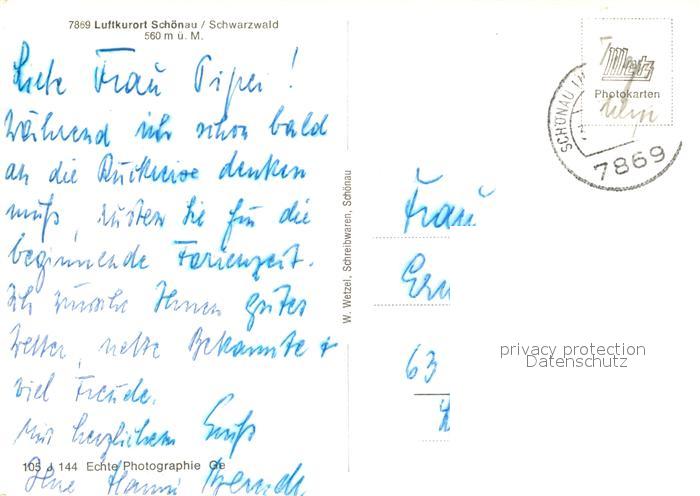 7869 Luftkurort Schönau / Schwarzwald
560 m ü. M.
Liebe Frau Pipei!
Während ich schon bald
an die Rückreise denken
muß, rüsten Sie für die
beginnende Ferienzeit.
Ich wünsche Ihnen gutes
Wetter, nette Bekannte +
viel Freude.
Mit herzlichem Gruß
Ihre Hanni
105 J 144 Echte Photographie Ge
W. Wetzel, Schreibwaren, Schönau
Metz
Photokarten
SCHÖNAU IM
7869
Frau
63
privacy protection
Datenschutz